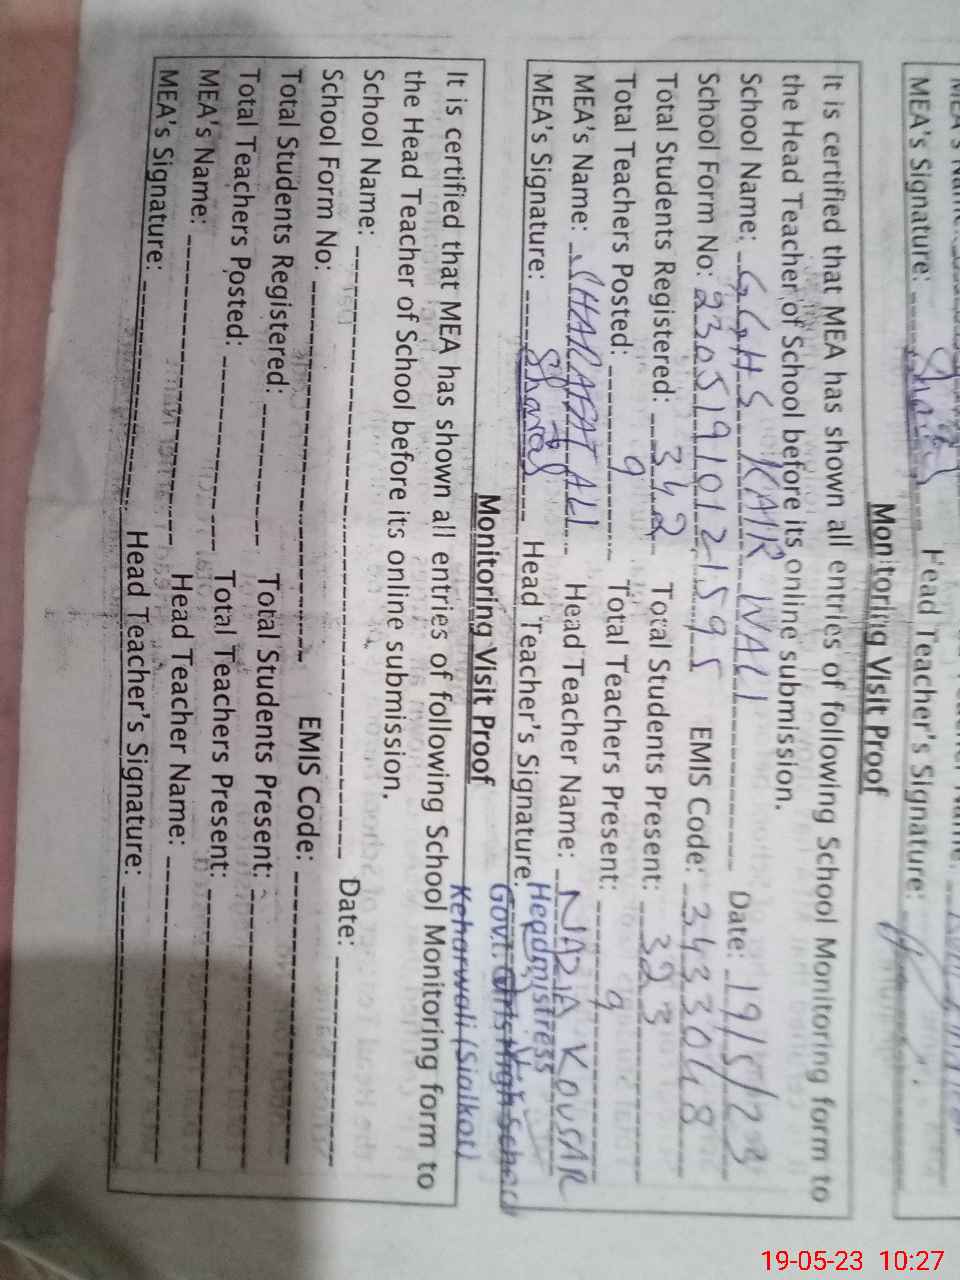 MEA's Signature: Head Teacher's Signature:
Monitoring Visit Proof
It is certified that MEA has shown all entries of following School Monitoring form to
the Head Teacher of School before its online submission.
School Name: GGHS KAIR WALI Date: 19/5/23
School Form No: 230519101215 95 EMIS Code: 34330418
Total Students Registered: 342 Total Students Present: 323
Total Teachers Posted: 9 Total Teachers Present: 9
MEA's Name: SHARAFAT ALI Head Teacher Name: NADIA KOUSAR
MEA's Signature: Sharaf Head Teacher's Signature:
Headmistress
Govt. Girls High School
Keharwali (Sialkot)
Monitoring Visit Proof
It is certified that MEA has shown all entries of following School Monitoring form to
the Head Teacher of School before its online submission.
School Name: Date:
School Form No: EMIS Code:
Total Students Registered: Total Students Present:
Total Teachers Posted: Total Teachers Present:
MEA's Name: Head Teacher Name:
MEA's Signature: Head Teacher's Signature:
19-05-23 10:27